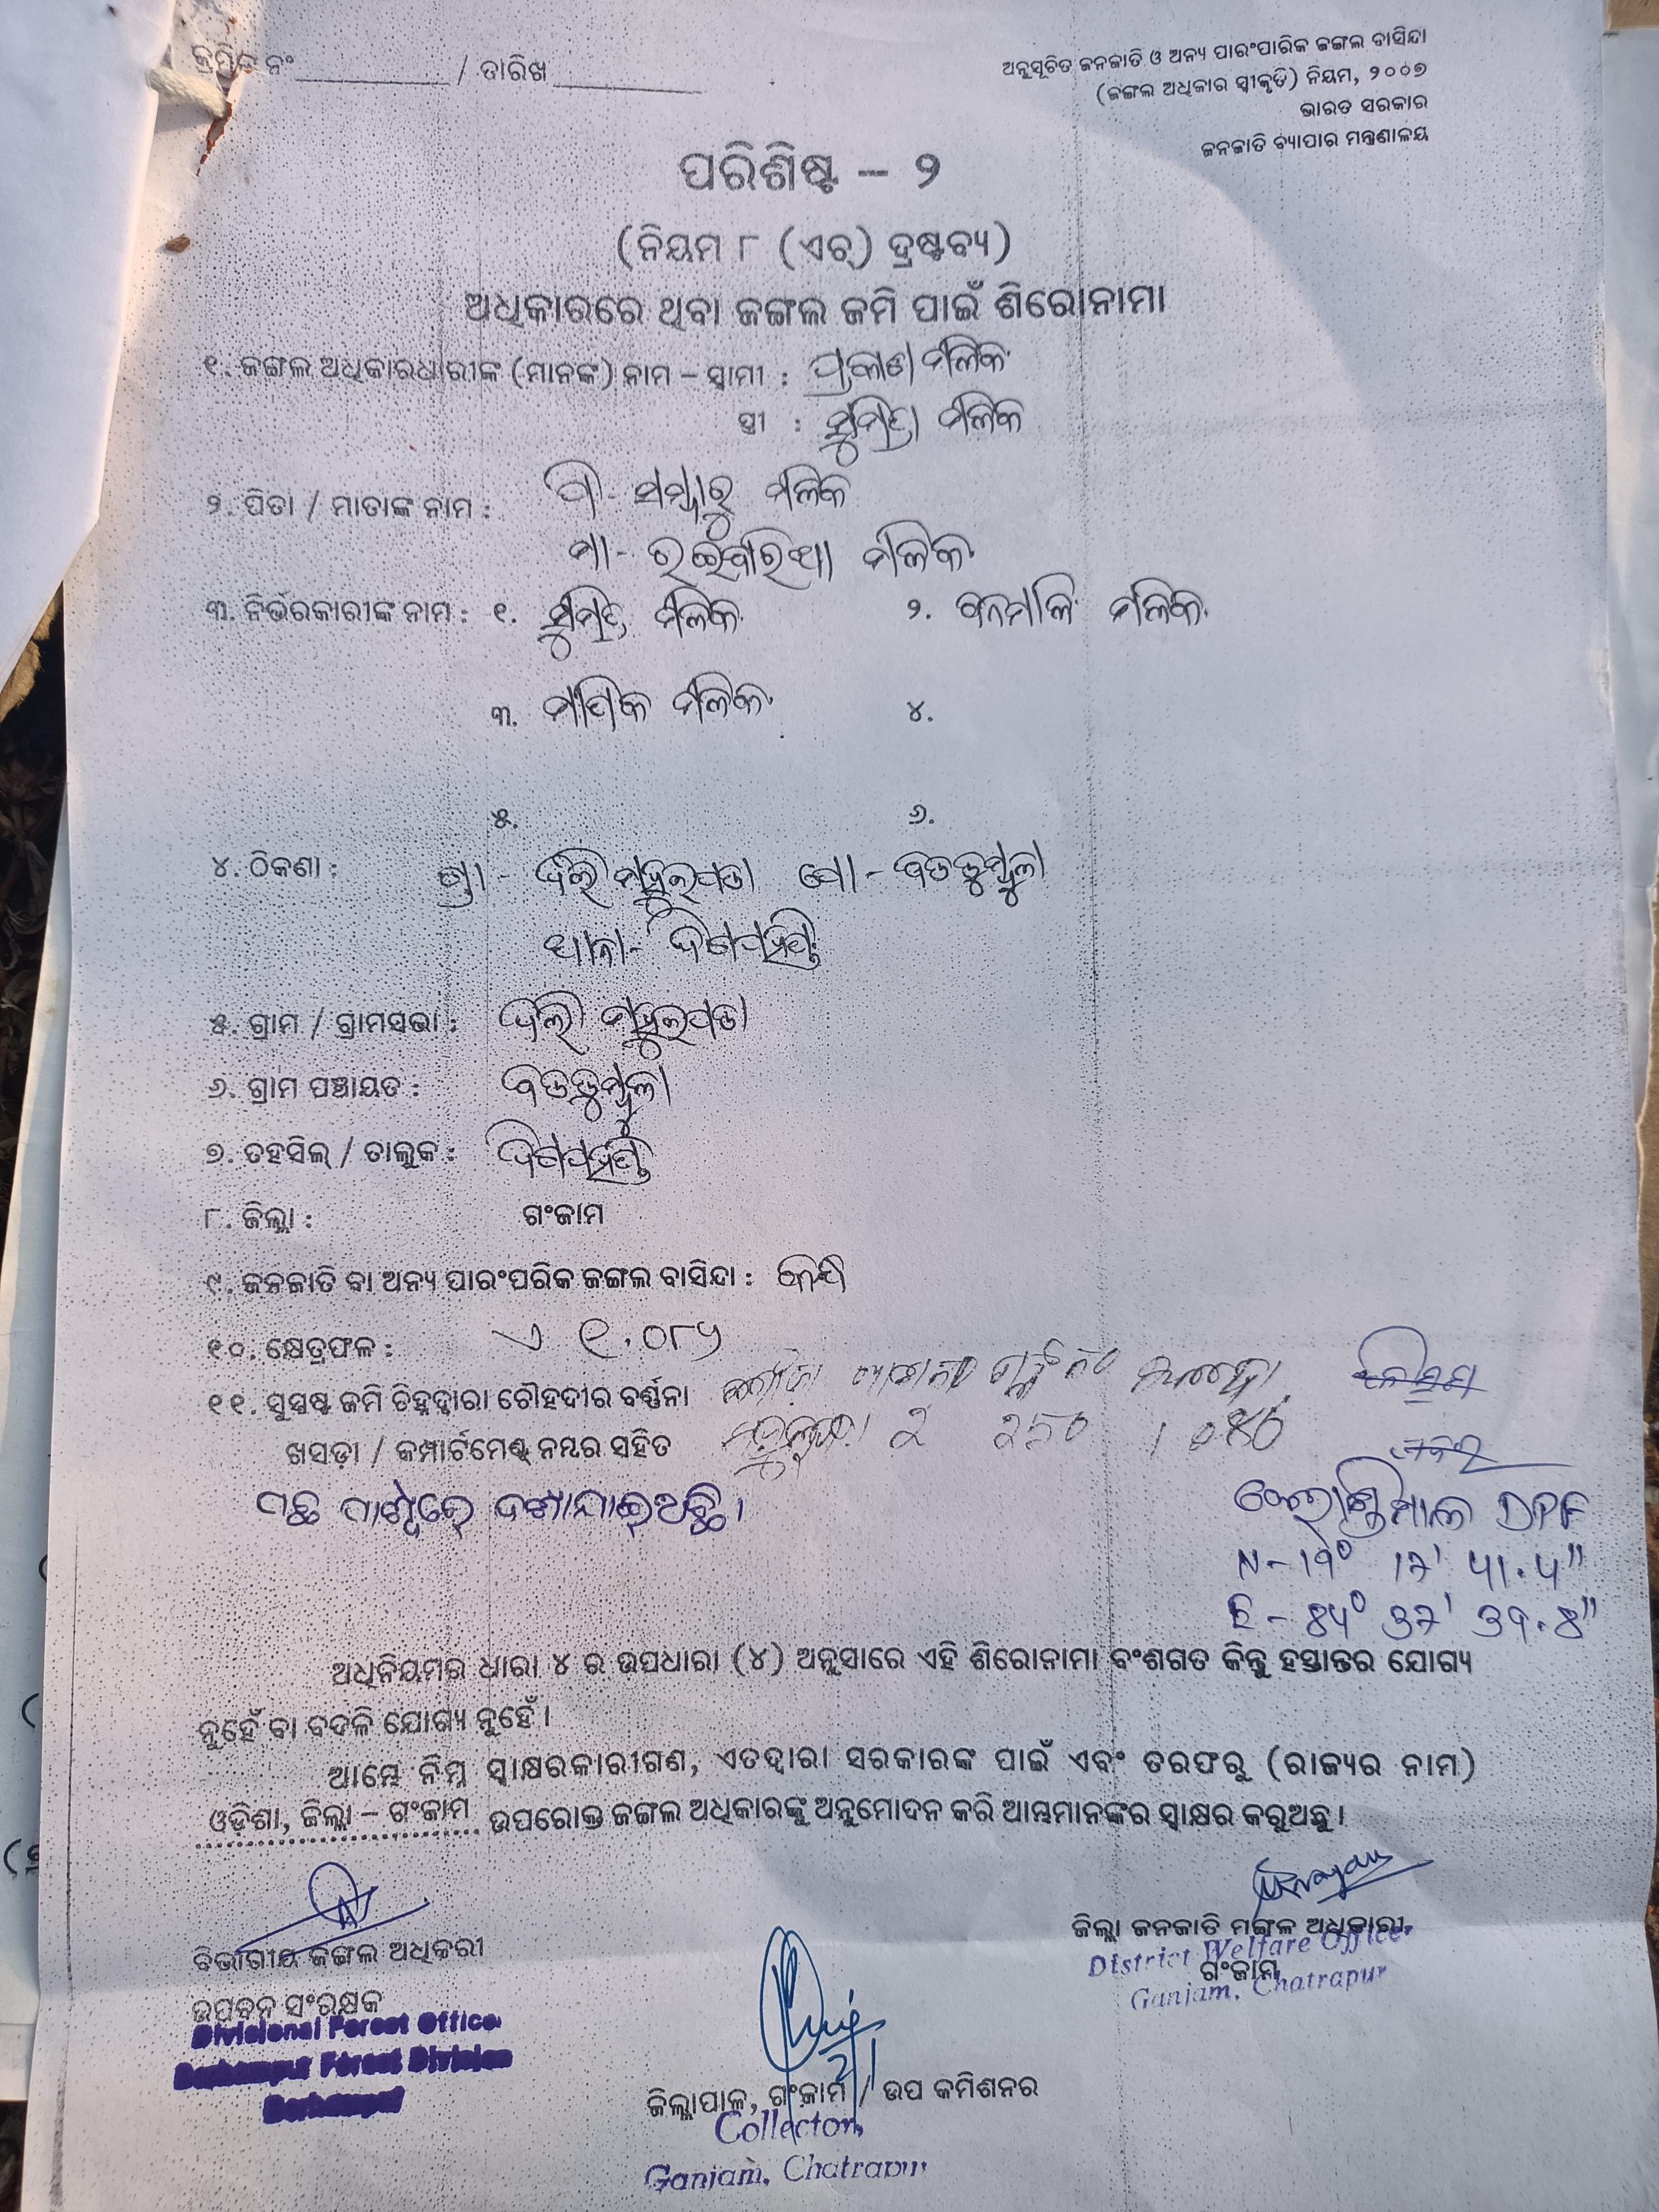 କ୍ରମିକ ନଂ / ତାରିଖ
ଅନୁସୂଚିତ ଜନଜାତି ଓ ଅନ୍ୟ ପାରଂପାରିକ ଜଙ୍ଗଲ ବାସିନ୍ଦା
(ଜଙ୍ଗଲ ଅଧିକାର ସ୍ୱୀକୃତି) ନିୟମ, ୨୦୦୭
ଭାରତ ସରକାର
ଜନଜାତି ବ୍ୟାପାର ମନ୍ତ୍ରଣାଳୟ
ପରିଶିଷ୍ଟ – ୨
(ନିୟମ ୮ (ଏଚ୍) ଦ୍ରଷ୍ଟବ୍ୟ)
ଅଧିକାରରେ ଥିବା ଜଙ୍ଗଲ ଜମି ପାଇଁ ଶିରୋନାମା
୧. ଜଙ୍ଗଲ ଅଧିକାରଧାରୀଙ୍କ (ମାନଙ୍କ) ନାମ – ସ୍ୱାମୀ : ପ୍ରକାଶ ମଲିକ
ସ୍ତ୍ରୀ : ସୁମିତ୍ରା ମଲିକ
୨. ପିତା / ମାତାଙ୍କ ନାମ : ପି- ସମ୍ବାରୁ ମଲିକ
ମା- ମଲିକ
୩. ନିର୍ଭରକାରୀଙ୍କ ନାମ : ୧. ସୁମିତ୍ରା ମଲିକ ୨. ବନମାଳି ମଲିକ
୩. ମଲିକ ୪.
୫. ୬.
୪. ଠିକଣା : ଗ୍ରା- ଦଲି ମହୁଲପଡା ପୋ- ବଡଡୁମୁଳା
ଥାନା- ଦିଗପହଣ୍ଡି
୫. ଗ୍ରାମ / ଗ୍ରାମସଭା : ଦଲି ମହୁଲପଡା
୬. ଗ୍ରାମ ପଞ୍ଚାୟତ : ବଡଡୁମୁଳା
୭. ତହସିଲ୍ / ତାଲୁକ : ଦିଗପହଣ୍ଡି
୮. ଜିଲ୍ଲା : ଗଂଜାମ
୯. ଜନଜାତି ବା ଅନ୍ୟ ପାରଂପରିକ ଜଙ୍ଗଲ ବାସିନ୍ଦା : କନ୍ଧ
୧୦. କ୍ଷେତ୍ରଫଳ : ଏ ୧.୦୮୫
୧୧. ସୁସ୍ପଷ୍ଟ ଜମି ଚିହ୍ନଦ୍ୱାରା ଚୌହଦୀର ବର୍ଣ୍ଣନା
ଖସଡ଼ା / କମ୍ପାର୍ଟମେଣ୍ଟ ନମ୍ବର ସହିତ
ପଛ ପାର୍ଶ୍ୱରେ ଦର୍ଶାଯାଇଅଛି ।
DPF
N - ୧୯° ୧୨' ୫୧.୫"
E - ୫୪° ୩୨' ୩୯.୫"
ଅଧିନିୟମର ଧାରା ୪ ର ଉପଧାରା (୪) ଅନୁସାରେ ଏହି ଶିରୋନାମା ବଂଶଗତ କିନ୍ତୁ ହସ୍ତାନ୍ତର ଯୋଗ୍ୟ
ନୁହେଁ ବା ବଦଳି ଯୋଗ୍ୟ ନୁହେଁ ।
ଆମ୍ଭେ ନିମ୍ନ ସ୍ୱାକ୍ଷରକାରୀଗଣ, ଏତଦ୍ୱାରା ସରକାରଙ୍କ ପାଇଁ ଏବଂ ତରଫରୁ (ରାଜ୍ୟର ନାମ)
ଓଡ଼ିଶା, ଜିଲ୍ଲା – ଗଂଜାମ ଉପରୋକ୍ତ ଜଙ୍ଗଲ ଅଧିକାରଙ୍କୁ ଅନୁମୋଦନ କରି ଆମ୍ଭମାନଙ୍କର ସ୍ୱାକ୍ଷର କରୁଅଛୁ ।
ବିଭାଗୀୟ ଜଙ୍ଗଲ ଅଧିକାରୀ
ଉପବନ ସଂରକ୍ଷକ
Divisional Forest Officer
Berhampur Forest Division
Berhampur
ଜିଲ୍ଲା ଜନଜାତି ମଙ୍ଗଳ ଅଧିକାରୀ,
ଗଂଜାମ
District Welfare Officer
Ganjam, Chatrapur
ଜିଲ୍ଲାପାଳ, ଗଂଜାମ / ଉପ କମିଶନର
Collector,
Ganjam, Chatrapur